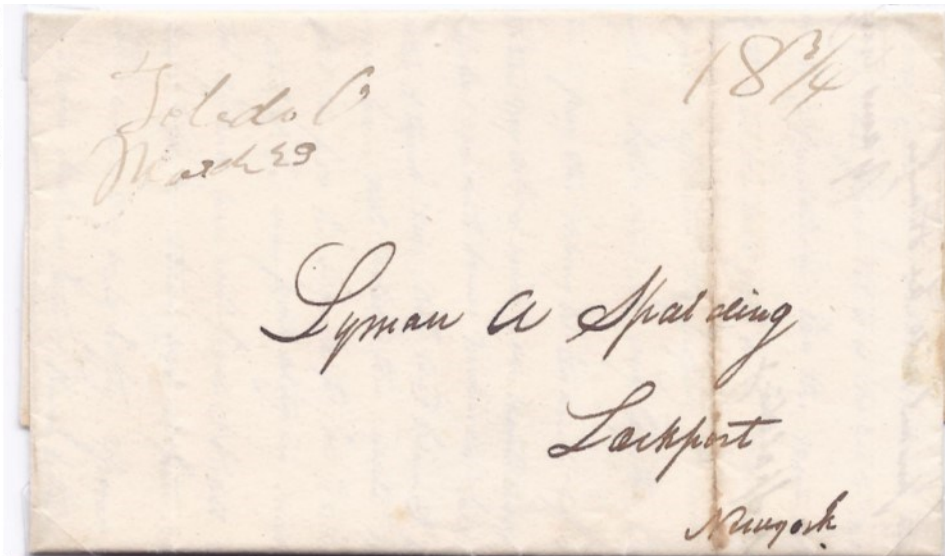 Toledo O
March 23
18 3/4
Lyman A Spalding
Lockport
Newyork